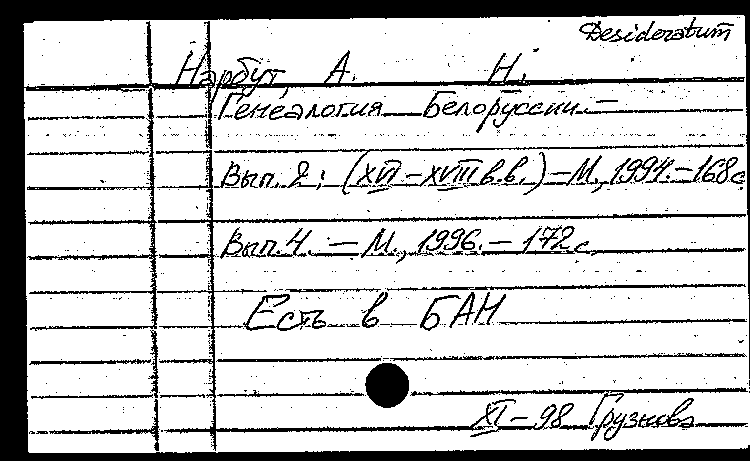 Desideratum
Нарбут, А. Н.
Генеалогия Белоруссии. –
Вып. 2: (XVI – XVIII в.в.) – М., 1994. – 168 с
Вып. 4. – М., 1996. – 172 с.
Есть в БАН
XI – 98 Грузнова